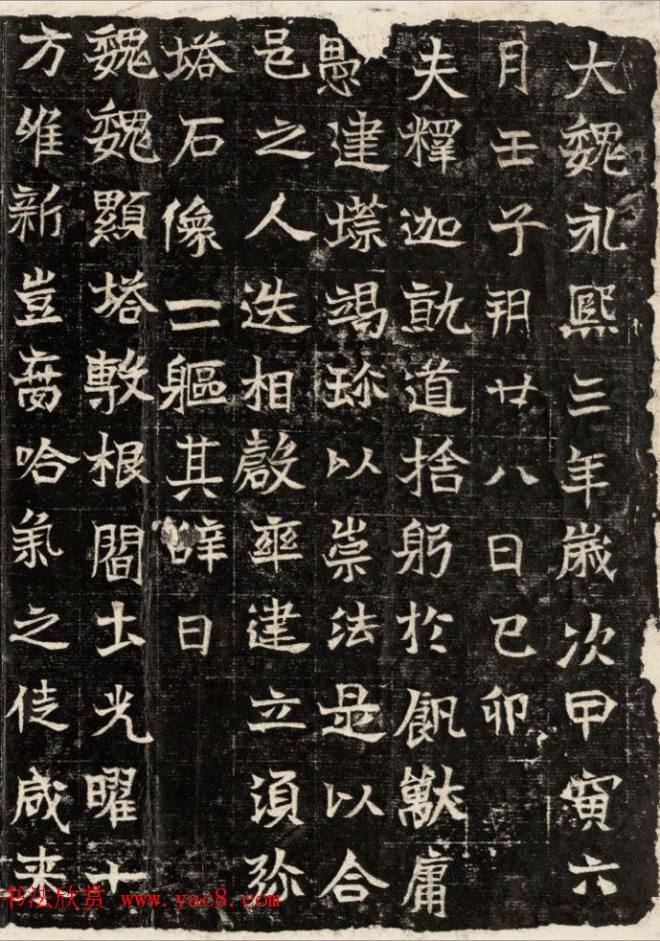 大魏永熙三年歲次甲寅六
月壬子朔廿八日己卯
夫釋迦就道捨躬於飢獸庸
愚建塔竭珎以崇法是以合
邑之人迭相罄率建立須弥
塔石像二軀其辭曰
魏魏顯塔敷根閻土光曜十
方唯新豈啇哈氣之徒咸来
书法欣赏 www.yac8.com